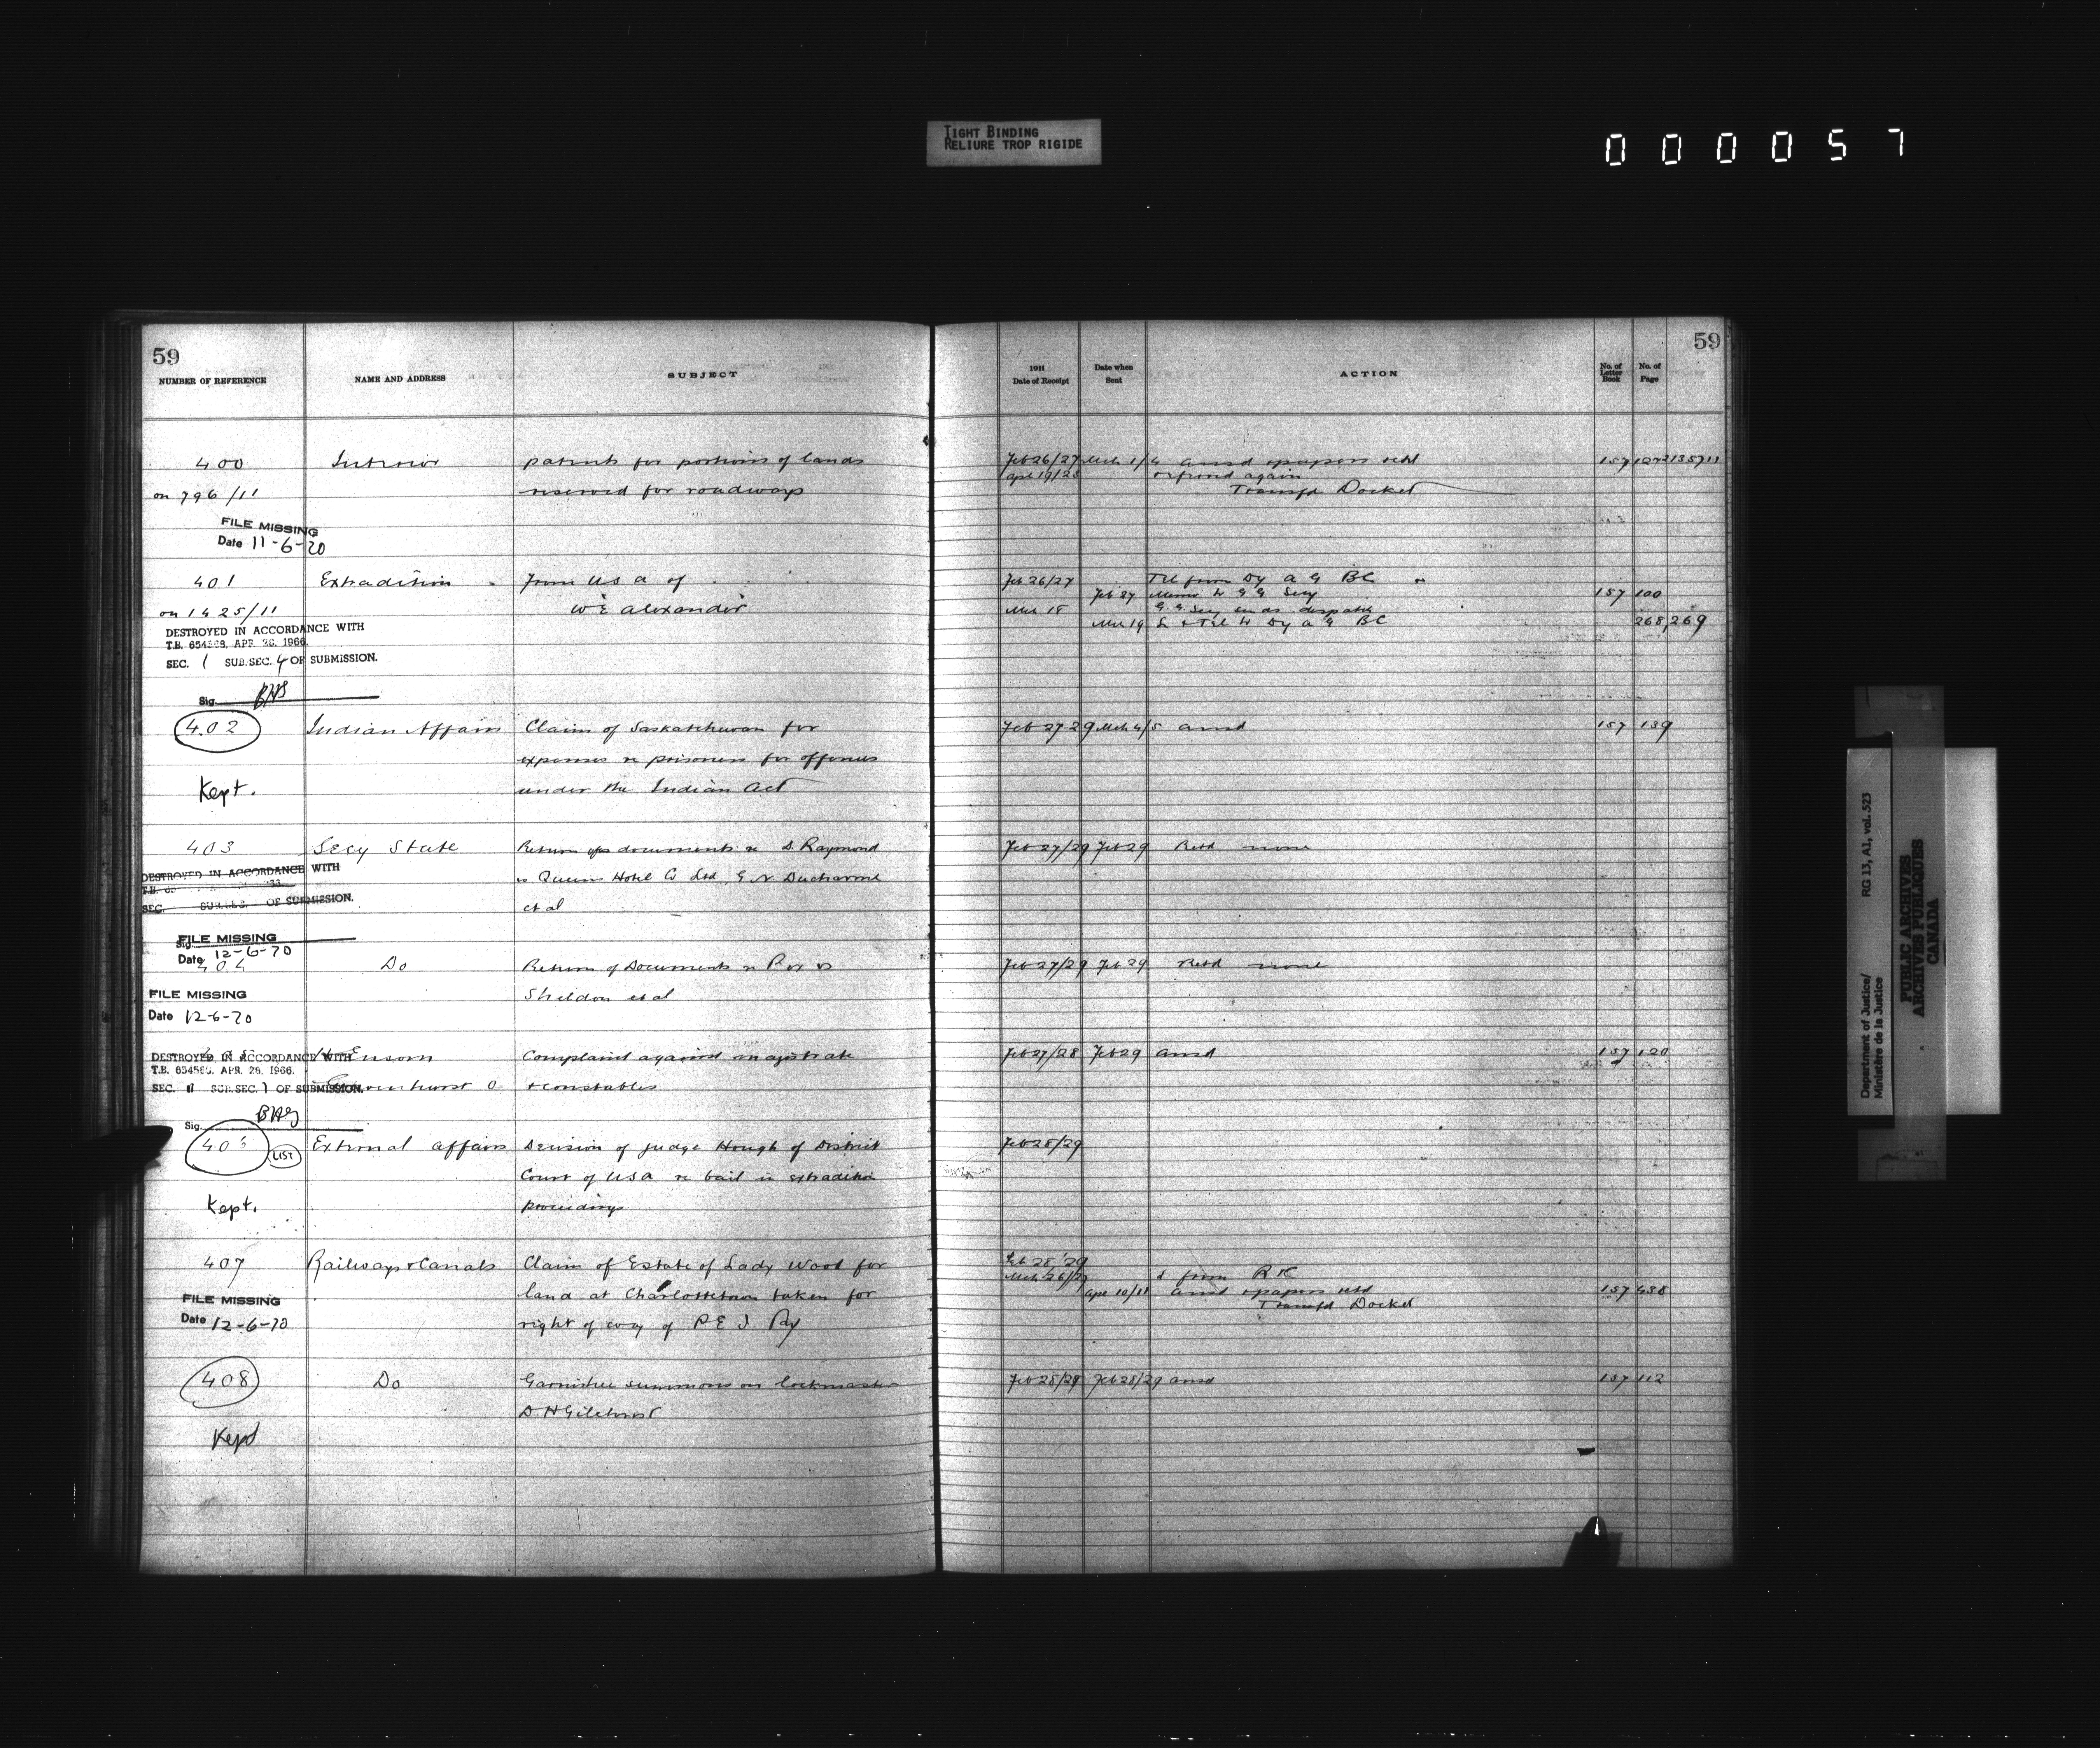 TIGHT BINDING
RELIURE TROP RIGIDE
000057
59
NUMBER OF REFERENCE NAME AND ADDRESS SUBJECT
400 Interior patents for portions of lands
on 796/11 reserved for roadways
FILE MISSING
Date 11-6-70
401 Extradition from USA of
on 1425/11 WE Alexander
DESTROYED IN ACCORDANCE WITH
T.B. APR. 26, 1966.
SEC. 1 SUB.SEC. 4 OF SUBMISSION.
Sig.
402 Indian Affairs Claim of Saskatchewan for
expenses re prisoners for offences
Kept. under the Indian Act
403 Secy State Return of documents re D. Raymond
DESTROYED IN ACCORDANCE WITH
vs Queens Hotel Co Ltd G N Ducharme
SEC. OF SUBMISSION.
et al
FILE MISSING
Sig.
Date 12-6-70
404 Do Return of Documents re Rex vs
FILE MISSING
Sheldon et al
Date 12-6-70
DESTROYED IN ACCORDANCE WITH
Complaint against magistrate
T.B. APR. 26, 1966.
SEC. SUB.SEC. 1 OF SUBMISSION.
+ constables
Sig.
LIST External Affairs Decision of Judge Hough of District
Court of USA re bail in extradition
Kept. proceedings
407 Railways + Canals Claim of Estate of Lady Wood for
FILE MISSING
land at Charlottetown taken for
Date 12-6-70
right of way of P E I Ry
408 Do Garnishee summons on lockmaster
D. H Gilchrist
Kept
59
1911
Date of Receipt
Date when
Sent
ACTION
No. of
Letter
Book
No. of
Page
Feb 26/27 Mch 1/4 ansd + papers retd 157
Apr 19/23 refused again
Transfd Docket
Feb 26/27 Tel from Dy A G BC
Feb 27 Memo to G G Secy 157 100
Mch 18 G.G. Secy sends despatch
Mch 19 L + Tel to Dy A G BC 268,269
Feb 27-29 Mch 4/5 ansd 157 139
Feb 27/29 Feb 29 Retd none
Feb 27/29 Feb 29 Retd none
Feb 27/28 Feb 29 ansd 157 120
Feb 28/29
Feb 28/29
Mch 26/27 from RC
Apr 10/11 ansd + papers retd 157 438
Transfd Docket
Feb 28/29 Feb 28/29 ansd 157 112
Department of Justice/ RG 13, A1, vol. 523
Ministère de la Justice
PUBLIC ARCHIVES
ARCHIVES PUBLIQUES
CANADA